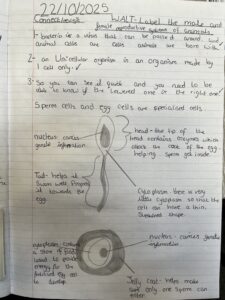 22/10/2025
Connect Back! WALT: Label the male and
female reproductive systems of animals.
1- Bacteria is a virus that can be passed around and
animal cells are cells animals are born with
2- an Unicellular organism is an organism made by
1 cell only.
3- So you can see it quick and you need to be
able to know if the lowered one is the right one!
Sperm cells and egg cells are specialised cells.
nucleus carries
genetic information
head- the tip of the
head contains enzymes which
coat of the egg
helping sperm get inside.
Tail- helps it
swim well. Propels
it towards the
egg.
Cytoplasm there is very
little cytoplasm so that the
cell can have a thin,
streamlined shape.
nucleus- carries genetic
information
cytoplasm contains
a store of food
used to provide
energy for the
fertilised egg cell
to develop
Jelly coat- helps make
sure only one sperm can
enter.